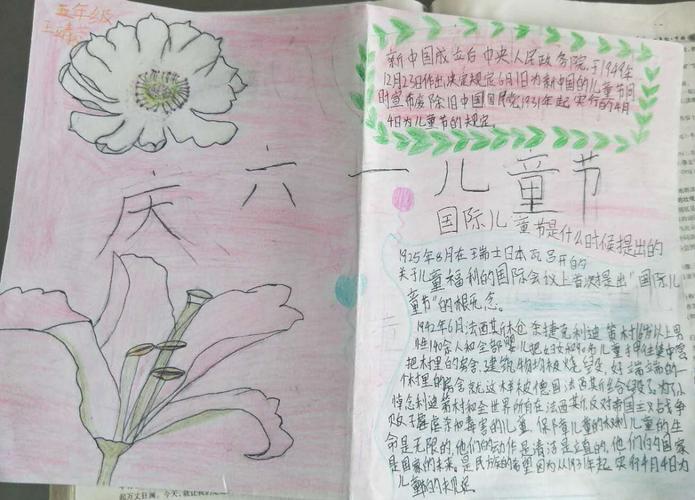 五年级
庆六一儿童节
新中国成立后中央人民政务院于1949年
12月23日作出决定规定6月1日为新中国的儿童节同
时宣布废除旧中国国民党1931年起实行的4月
4日为儿童节的规定。
国际儿童节是什么时候提出的
1925年8月在瑞士日本瓦召开的
关于儿童福利的国际会议上首次提出“国际儿
童节”的概念。
1942年6月法西斯
捷克利迪
村16岁以上男
140余人和全部婴儿把妇女和90名儿童
集中营
把村里的房舍、建筑物均被烧毁，好端端的一
个村里的房舍就这样被德国法西斯给毁了为了
悼念利迪
村和全世界所有在法西斯反对帝国主义占
争
虐杀和毒害的儿童，保障儿童的权利儿童的生
命是无限的，他们的动作是清活是
的，他们的国家
是国家的未来，是民族的希望因为从1931年起实行4月4日为
儿童节的规定